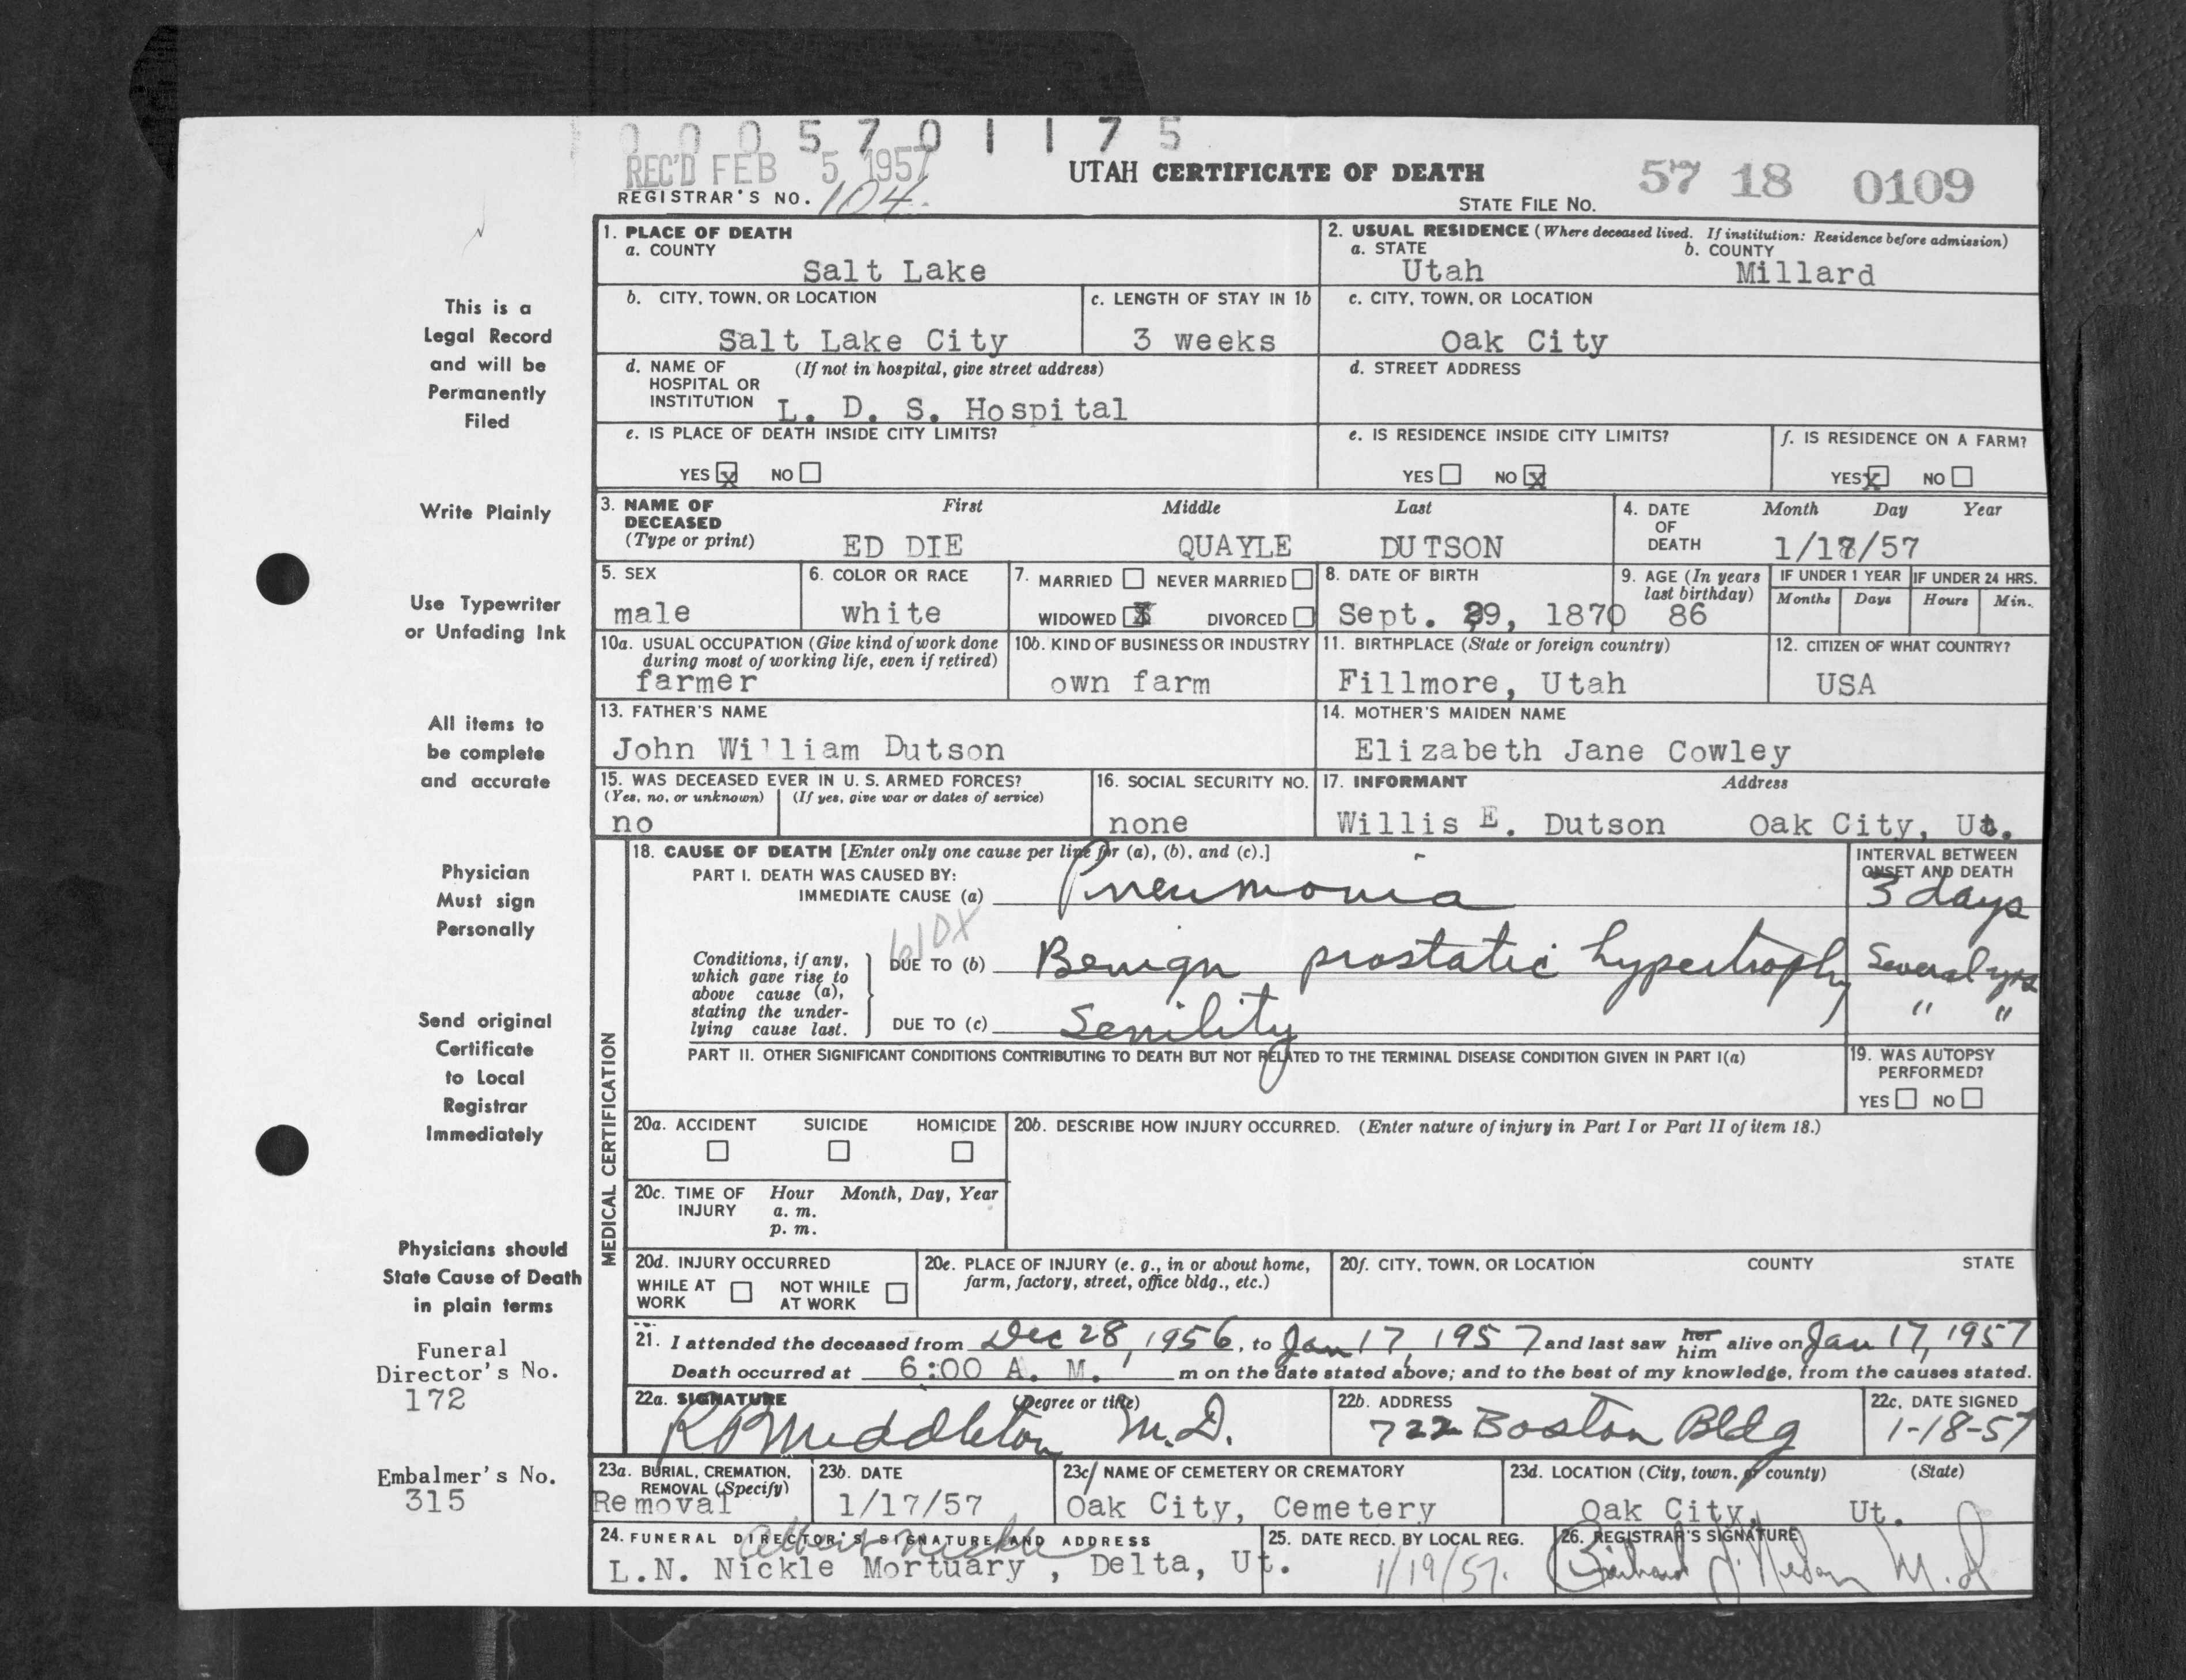 0 0 0 5 7 0 1 1 7 5
REC'D FEB 5 1957
UTAH CERTIFICATE OF DEATH
57 18 0109
REGISTRAR'S NO. 104.
STATE FILE NO.
1. PLACE OF DEATH
a. COUNTY
Salt Lake
2. USUAL RESIDENCE (Where deceased lived. If institution: Residence before admission)
a. STATE b. COUNTY
Utah Millard
b. CITY, TOWN, OR LOCATION
Salt Lake City
c. LENGTH OF STAY IN 1b
3 weeks
c. CITY, TOWN, OR LOCATION
Oak City
d. NAME OF (If not in hospital, give street address)
HOSPITAL OR
INSTITUTION L. D. S. Hospital
d. STREET ADDRESS
e. IS PLACE OF DEATH INSIDE CITY LIMITS?
YES X NO
e. IS RESIDENCE INSIDE CITY LIMITS?
YES NO X
f. IS RESIDENCE ON A FARM?
YES X NO
3. NAME OF First Middle Last
DECEASED
(Type or print) ED DIE QUAYLE DUTSON
4. DATE Month Day Year
OF
DEATH 1/17/57
5. SEX
male
6. COLOR OR RACE
white
7. MARRIED NEVER MARRIED
WIDOWED X DIVORCED
8. DATE OF BIRTH
Sept. 29, 1870
9. AGE (In years
last birthday)
86
IF UNDER 1 YEAR IF UNDER 24 HRS.
Months Days Hours Min.
10a. USUAL OCCUPATION (Give kind of work done
during most of working life, even if retired)
farmer
10b. KIND OF BUSINESS OR INDUSTRY
own farm
11. BIRTHPLACE (State or foreign country)
Fillmore, Utah
12. CITIZEN OF WHAT COUNTRY?
USA
13. FATHER'S NAME
John William Dutson
14. MOTHER'S MAIDEN NAME
Elizabeth Jane Cowley
15. WAS DECEASED EVER IN U. S. ARMED FORCES?
(Yes, no, or unknown) (If yes, give war or dates of service)
no
16. SOCIAL SECURITY NO.
none
17. INFORMANT Address
Willis E. Dutson Oak City, Ut.
MEDICAL CERTIFICATION
18. CAUSE OF DEATH [Enter only one cause per line for (a), (b), and (c).]
PART I. DEATH WAS CAUSED BY:
IMMEDIATE CAUSE (a) Pneumonia
INTERVAL BETWEEN
ONSET AND DEATH
3 days
610X
Conditions, if any,
which gave rise to
above cause (a),
stating the under-
lying cause last.
DUE TO (b) Benign prostatic hypertrophy Several yrs
DUE TO (c) Senility " "
PART II. OTHER SIGNIFICANT CONDITIONS CONTRIBUTING TO DEATH BUT NOT RELATED TO THE TERMINAL DISEASE CONDITION GIVEN IN PART I(a)
19. WAS AUTOPSY
PERFORMED?
YES NO
20a. ACCIDENT SUICIDE HOMICIDE
20b. DESCRIBE HOW INJURY OCCURRED. (Enter nature of injury in Part I or Part II of item 18.)
20c. TIME OF Hour Month, Day, Year
INJURY a. m.
p. m.
20d. INJURY OCCURRED
WHILE AT NOT WHILE
WORK AT WORK
20e. PLACE OF INJURY (e. g., in or about home,
farm, factory, street, office bldg., etc.)
20f. CITY, TOWN, OR LOCATION COUNTY STATE
21. I attended the deceased from Dec 28, 1956, to Jan 17, 1957 and last saw her him alive on Jan 17, 1957
Death occurred at 6:00 A. M. m on the date stated above; and to the best of my knowledge, from the causes stated.
22a. SIGNATURE (Degree or title)
R P Middleton M.D.
22b. ADDRESS
722 Boston Bldg
22c. DATE SIGNED
1-18-57
23a. BURIAL, CREMATION,
REMOVAL (Specify)
Removal
23b. DATE
1/17/57
23c. NAME OF CEMETERY OR CREMATORY
Oak City, Cemetery
23d. LOCATION (City, town, or county) (State)
Oak City, Ut.
24. FUNERAL DIRECTOR'S SIGNATURE AND ADDRESS
Albert Nickle
L.N. Nickle Mortuary , Delta, Ut.
25. DATE RECD. BY LOCAL REG.
1/19/57.
26. REGISTRAR'S SIGNATURE
M.D
This is a
Legal Record
and will be
Permanently
Filed
Write Plainly
Use Typewriter
or Unfading Ink
All items to
be complete
and accurate
Physician
Must sign
Personally
Send original
Certificate
to Local
Registrar
Immediately
Physicians should
State Cause of Death
in plain terms
Funeral
Director's No.
172
Embalmer's No.
315